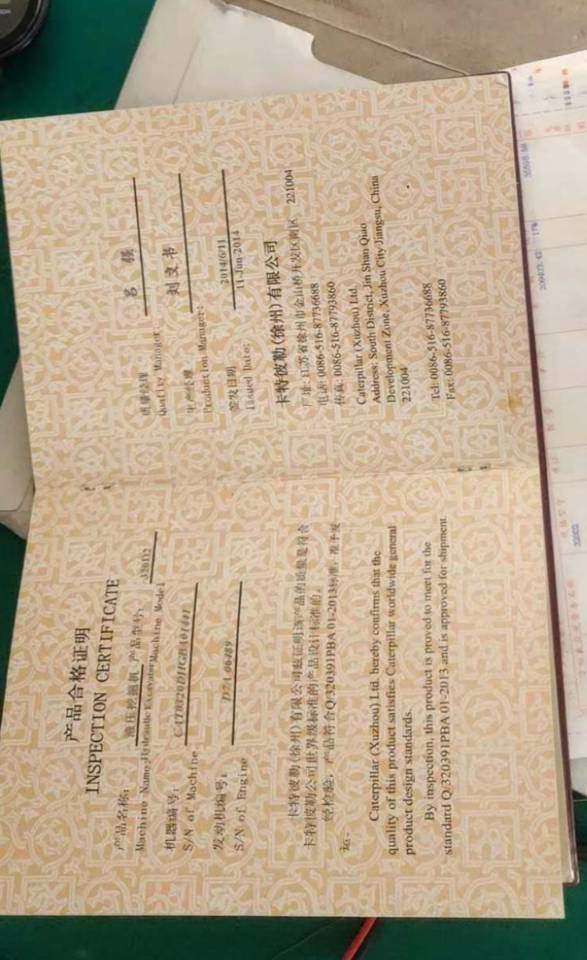 产品合格证明
INSPECTION CERTIFICATE
产品名称: 液压挖掘机 产品型号:
Machine Name: Hydraulic Excavator Machine Model
机器编号:
S/N of Machine
发动机编号:
S/N of Engine
卡特彼勒(徐州)有限公司兹证明该产品的质量符合
卡特彼勒公司世界级标准的产品设计标准的。
经检验, 产品符合Q/320391PBA 01-2013标准, 准予发
运。
Caterpillar (Xuzhou) Ltd. hereby confirms that the
quality of this product satisfies Caterpillar worldwide general
product design standards.
By inspection, this product is proved to meet for the
standard Q/320391PBA 01-2013 and is approved for shipment.
质量经理 吕 强
Quality Manager:
生产经理 刘文书
Production Manager:
签发日期 2014/6/11
Issued Date: 11-Jun-2014
卡特彼勒(徐州)有限公司
厂址: 江苏省徐州市金山桥开发区南区 221004
电话: 0086-516-87736688
传真: 0086-516-87793860
Caterpillar (Xuzhou) Ltd.
Address: South District, Jin Shan Qiao
Development Zone, Xuzhou City Jiangsu, China
221004
Tel: 0086-516-87736688
Fax: 0086-516-87793860